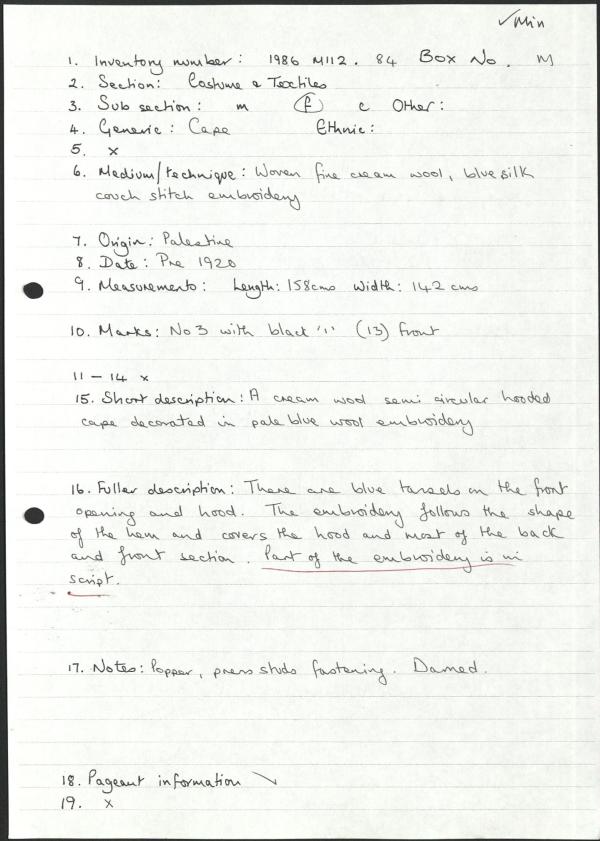 ✓Min
1. Inventory number: 1986 M112. 84 Box No. M
2. Section: Costume & Textiles
3. Sub section: m f c Other:
4. Generic: Cape Ethnic:
5. x
6. Medium/technique: Woven fine cream wool, blue silk
couch stitch embroidery
7. Origin: Palestine
8. Date: Pre 1920
9. Measurements: Length: 158cms Width: 142 cms
10. Marks: No 3 with black '1' (13) front
11 - 14 x
15. Short description: A cream wool semi circular hooded
cape decorated in pale blue wool embroidery
16. Fuller description: There are blue tassels on the front
opening and hood. The embroidery follows the shape
of the hem and covers the hood and most of the back
and front section. Part of the embroidery is in
script.
17. Notes: Popper, press studs fastening. Darned.
18. Pageant information
19. x